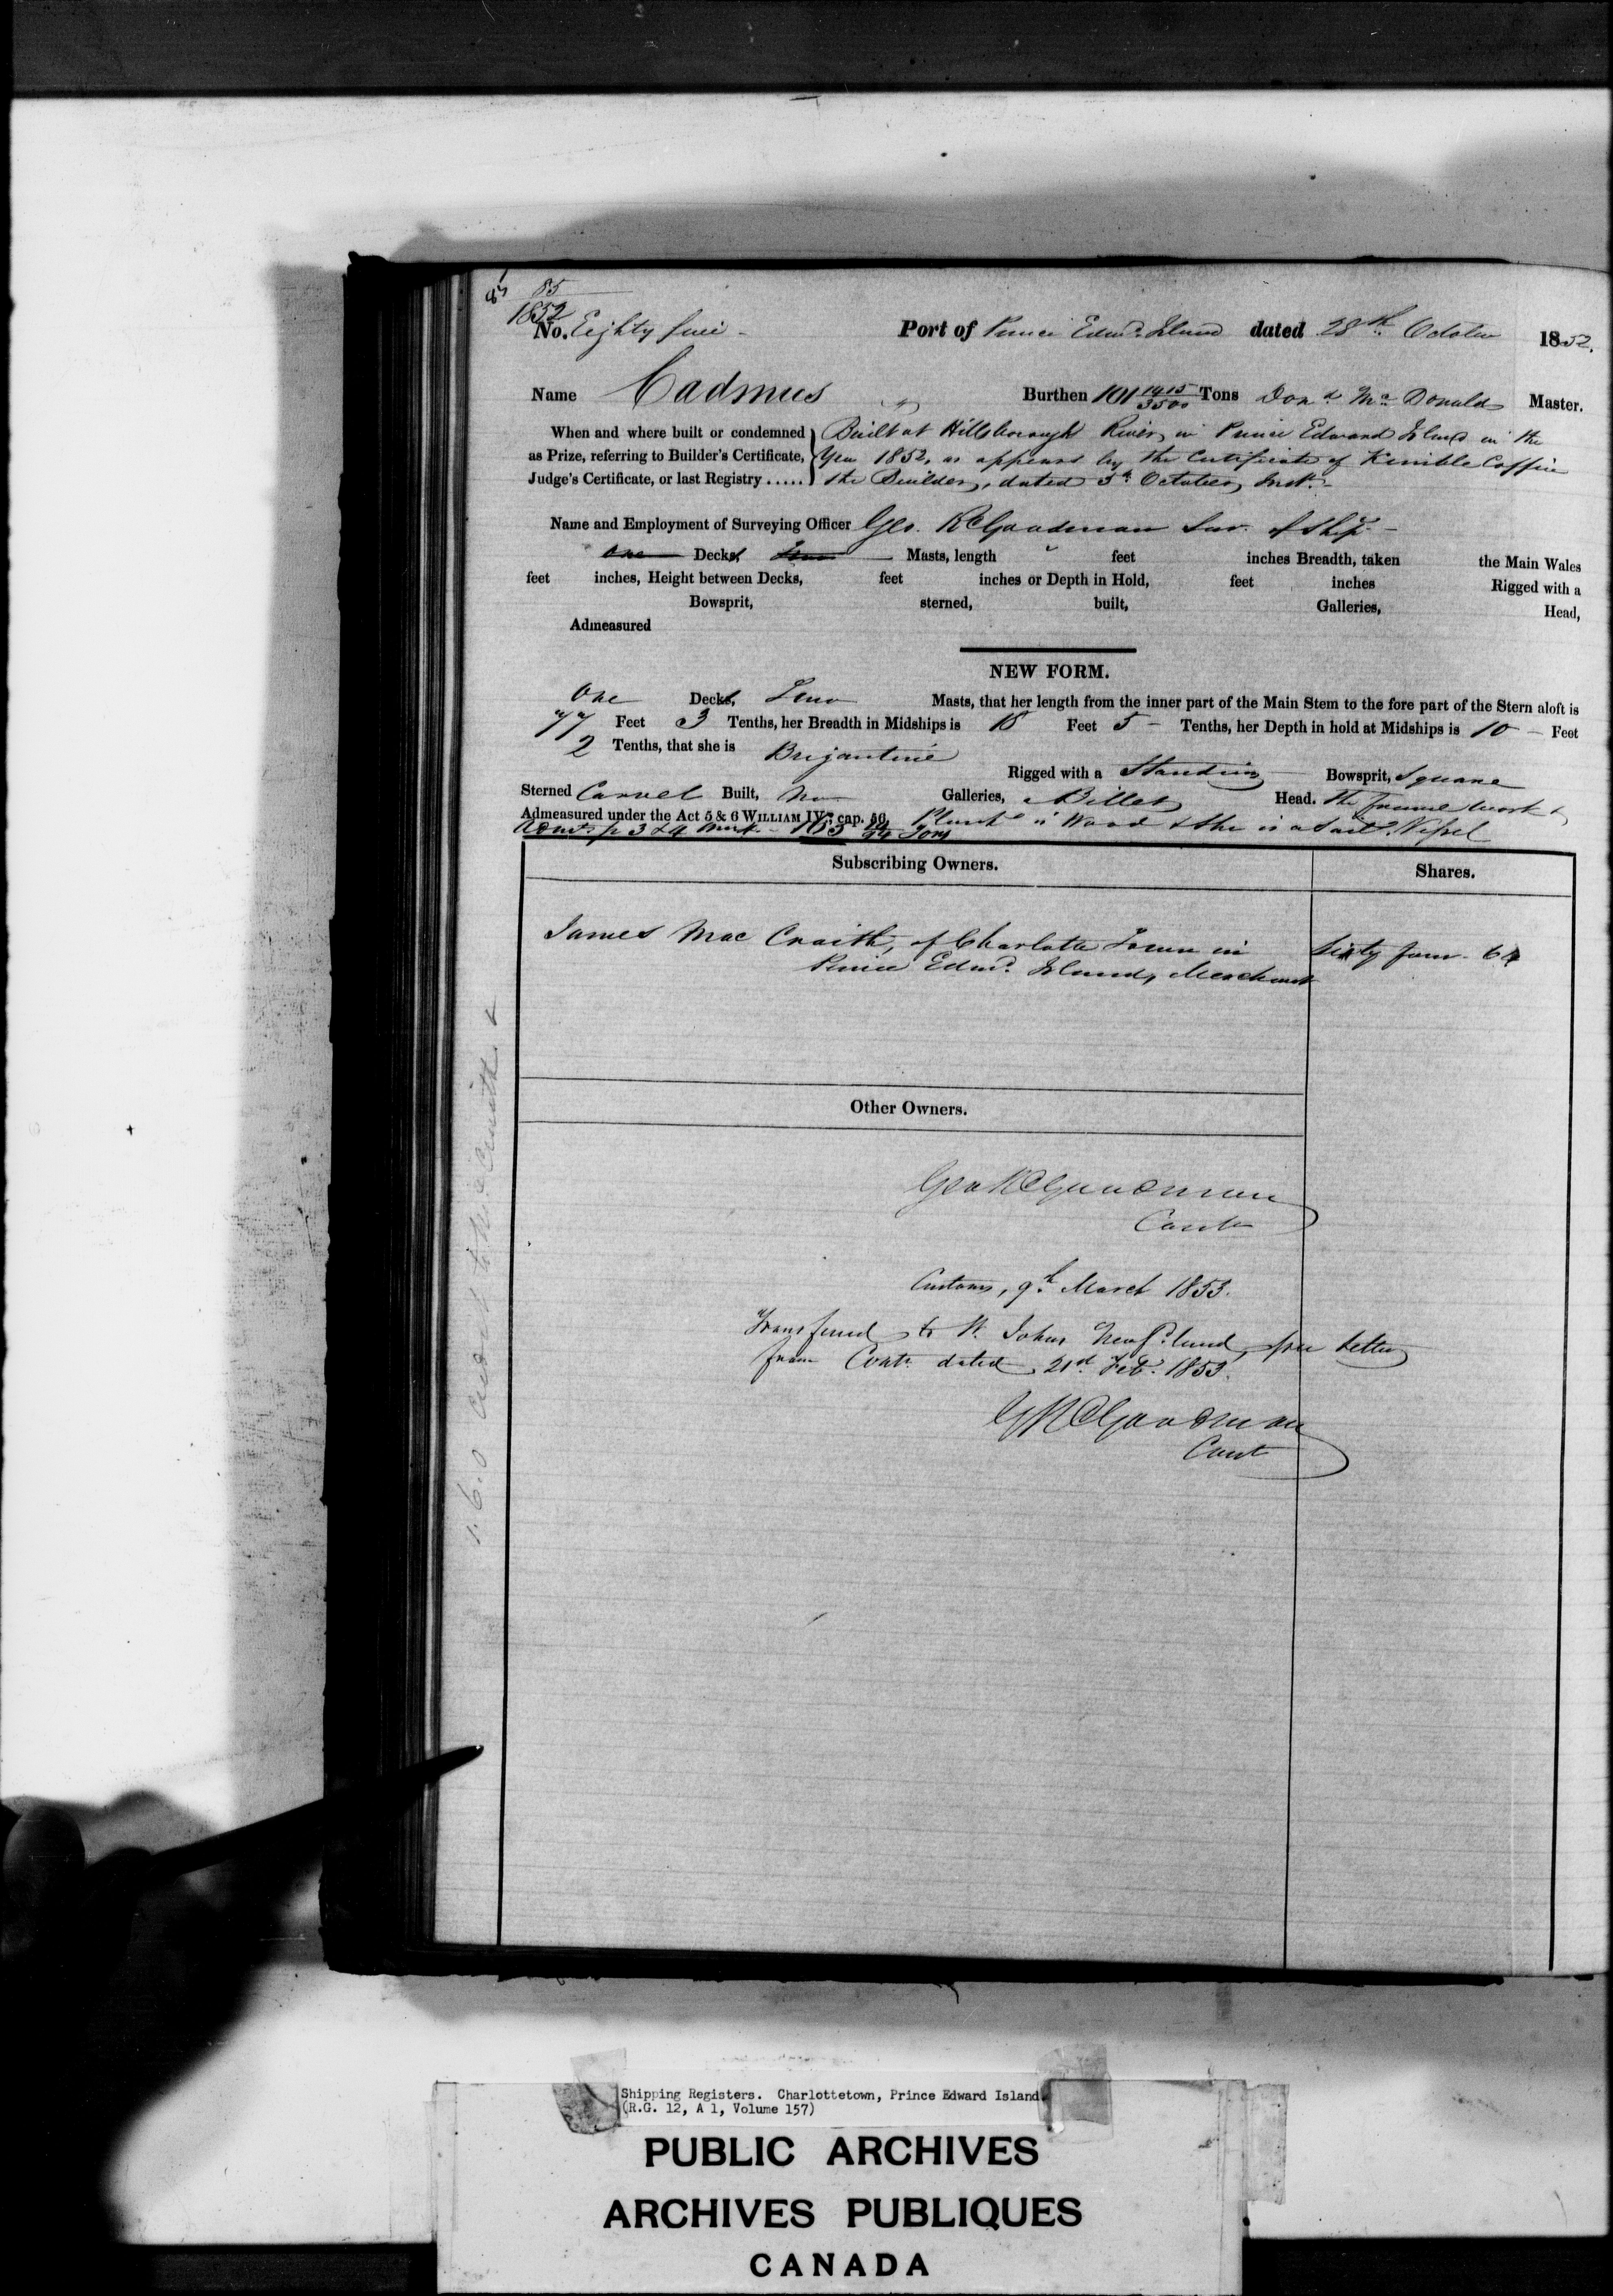 85
1852
No. Eighty five - Port of Prince Edwd. Island dated 28th October 1852.
Name Cadmus Burthen 101 1415/3500 Tons Dond. Mc Donald Master.
When and where built or condemned Built at Hillsborough River, in Prince Edward Island in the
as Prize, referring to Builder's Certificate, Year 1852, as appears by the Certificate of Kimble Coffin
Judge's Certificate, or last Registry ..... the Builder, dated 5th October, Inst. -
Name and Employment of Surveying Officer Geo. R Goodman Sur. of Ship -
One Decks Two Masts, length feet inches Breadth, taken the Main Wales
feet inches, Height between Decks, feet inches or Depth in Hold, feet inches Rigged with a
Bowsprit, sterned, built, Galleries, Head,
Admeasured
NEW FORM.
One Deck, Two Masts, that her length from the inner part of the Main Stem to the fore part of the Stern aloft is
77 Feet 3 Tenths, her Breadth in Midships is 18 Feet 5 - Tenths, her Depth in hold at Midships is 10 - Feet
2 Tenths, that she is Brigantine Rigged with a Standing Bowsprit, Square
Sterned Carvel Built, No Galleries, Billet Head. The frame work &
Admeasured under the Act 5 & 6 WILLIAM IV., cap. 56, Plank is Wood & she is a Sailg. Vessel
Subscribing Owners. Shares.
James Mac Craith, of Charlotte Town in Sixty four - 64
Prince Edwd. Island, Merchant
Other Owners.
Geo R Goodman
Contr
Customs, 9th March 1853.
Transferred to St. Johns Newfd.land, per letter
from Contr. dated 21st Feb. 1853.
G R Goodman
Cont
1.6.0
Shipping Registers. Charlottetown, Prince Edward Island
(R.G. 12, A 1, Volume 157)
PUBLIC ARCHIVES
ARCHIVES PUBLIQUES
CANADA